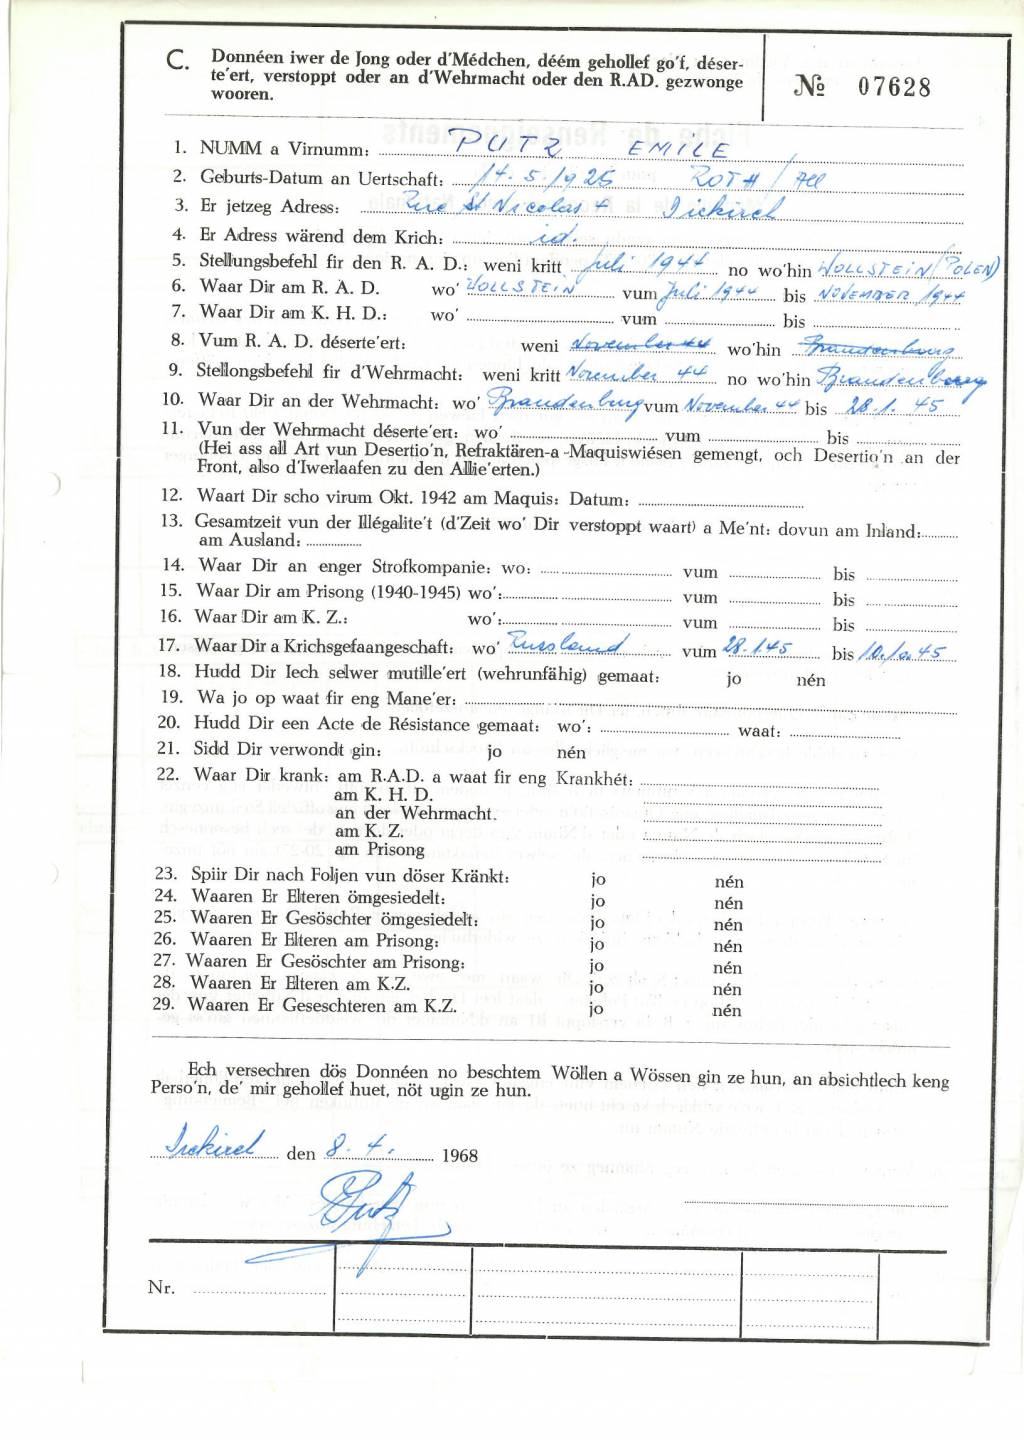 C. Donnéen iwer de Jong oder d'Médchen, déém gehollef go'f, déser-
te'ert, verstoppt oder an d'Wehrmacht oder den R.AD. gezwonge
wooren.
№ 07628
1. NUMM a Virnumm: PUTZ EMILE
2. Geburts-Datum an Uertschaft: 14.5.1925 ROTH/All
3. Er jetzeg Adress: Rue St Nicolas 4 Diekirch
4. Er Adress wärend dem Krich: id.
5. Stellungsbefehl fir den R. A. D.: weni kritt Juli 1944 no wo'hin WOLLSTEIN (POLEN)
6. Waar Dir am R. A. D. wo' WOLLSTEIN vum Juli 1944 bis NOVEMBER 1944
7. Waar Dir am K. H. D.: wo' vum bis
8. Vum R. A. D. déserte'ert: weni November 44 wo'hin Brandenburg
9. Stellongsbefehl fir d'Wehrmacht: weni kritt November 44 no wo'hin Brandenburg
10. Waar Dir an der Wehrmacht: wo' Brandenburg vum November 44 bis 28.1.45
11. Vun der Wehrmacht déserte'ert: wo' vum bis
(Hei ass all Art vun Desertio'n, Refraktären-a-Maquiswiésen gemengt, och Desertio'n an der
Front, also d'Iwerlaafen zu den Allie'erten.)
12. Waart Dir scho virum Okt. 1942 am Maquis: Datum:
13. Gesamtzeit vun der Illégalite't (d'Zeit wo' Dir verstoppt waart) a Me'nt: dovun am Inland:
am Ausland:
14. Waar Dir an enger Strofkompanie: wo: vum bis
15. Waar Dir am Prisong (1940-1945) wo': vum bis
16. Waar Dir am K. Z.: wo': vum bis
17. Waar Dir a Krichsgefaangeschaft: wo' Russland vum 28.1.45 bis 45
18. Hudd Dir Iech selwer mutille'ert (wehrunfähig) gemaat: jo nén
19. Wa jo op waat fir eng Mane'er:
20. Hudd Dir een Acte de Résistance gemaat: wo': waat:
21. Sidd Dir verwondt gin: jo nén
22. Waar Dir krank: am R.A.D. a waat fir eng Krankhét:
am K. H. D.
an der Wehrmacht.
am K. Z.
am Prisong
23. Spiir Dir nach Foljen vun döser Kränkt: jo nén
24. Waaren Er Elteren ömgesiedelt: jo nén
25. Waaren Er Gesöschter ömgesiedelt: jo nén
26. Waaren Er Elteren am Prisong: jo nén
27. Waaren Er Gesöschter am Prisong: jo nén
28. Waaren Er Elteren am K.Z. jo nén
29. Waaren Er Geseschteren am K.Z. jo nén
Ech versechren dös Donnéen no beschtem Wöllen a Wössen gin ze hun, an absichtlech keng
Perso'n, de' mir gehollef huet, nöt ugin ze hun.
Diekirch den 8.4. 1968
Putz
Nr.